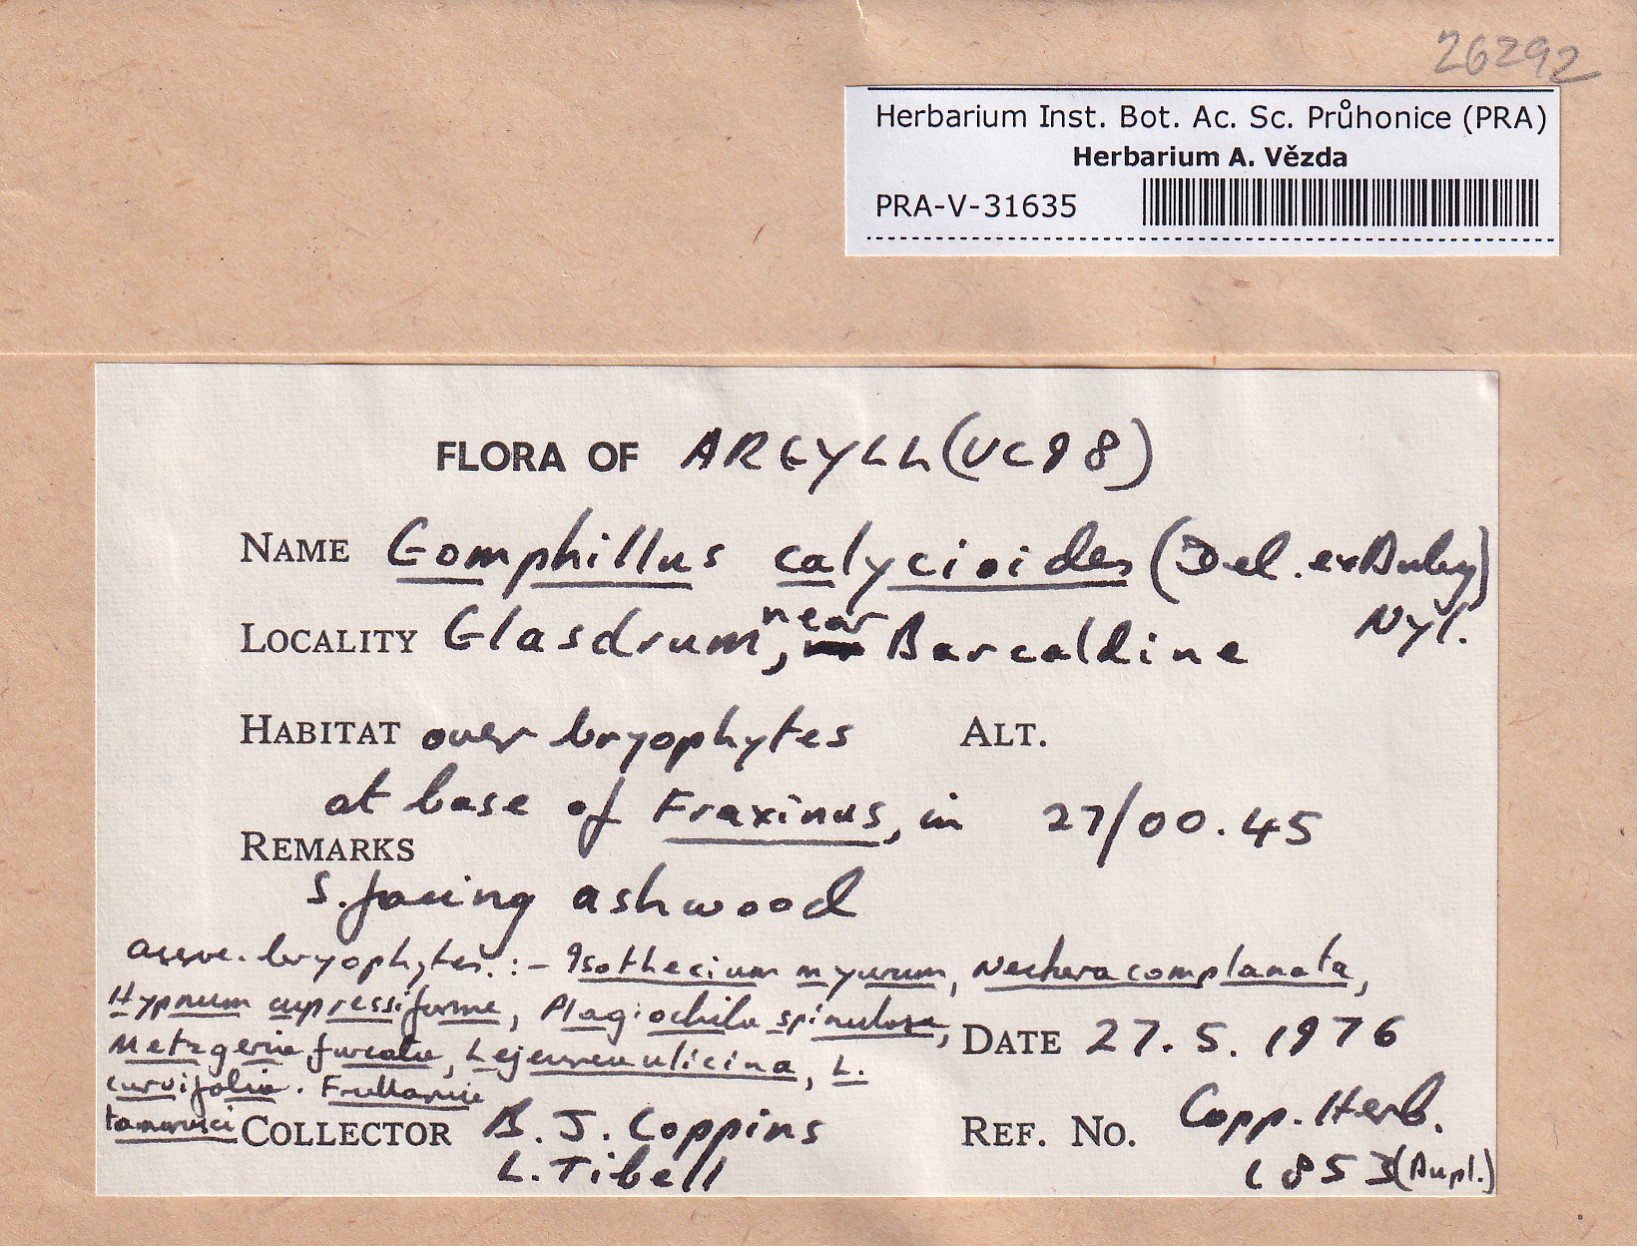 26292
Herbarium Inst. Bot. Ac. Sc. Průhonice (PRA)
Herbarium A. Vězda
PRA-V-31635
FLORA OF ARGYLL (VC 98)
NAME Gomphillus calycioides (Del. ex Duby)
Nyl.
LOCALITY Glasdrum, near Barcaldine
HABITAT over bryophytes ALT.
at base of Fraxinus, in 27/00.45
REMARKS
S. facing ashwood
assoc. bryophytes :- Isothecium myurum, Neckera complanata,
Hypnum cupressiforme, Plagiochila spinulosa,
Metzgeria furcata, Lejeunea ulicina, L.
curvifolia. Frullania
tamarisci
DATE 27.5.1976
COLLECTOR B. J. Coppins
L. Tibell
REF. NO. Copp. Herb.
1853 (Dupl.)